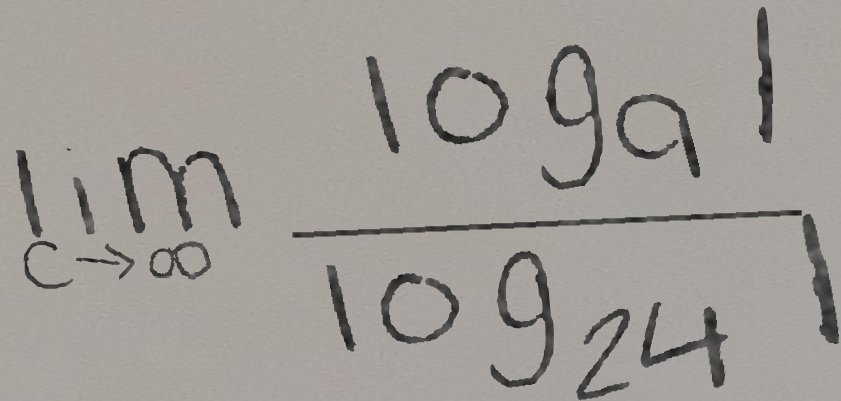 \lim_{c \to \infty} \frac{\log_{9} 1}{\log_{24} 1}